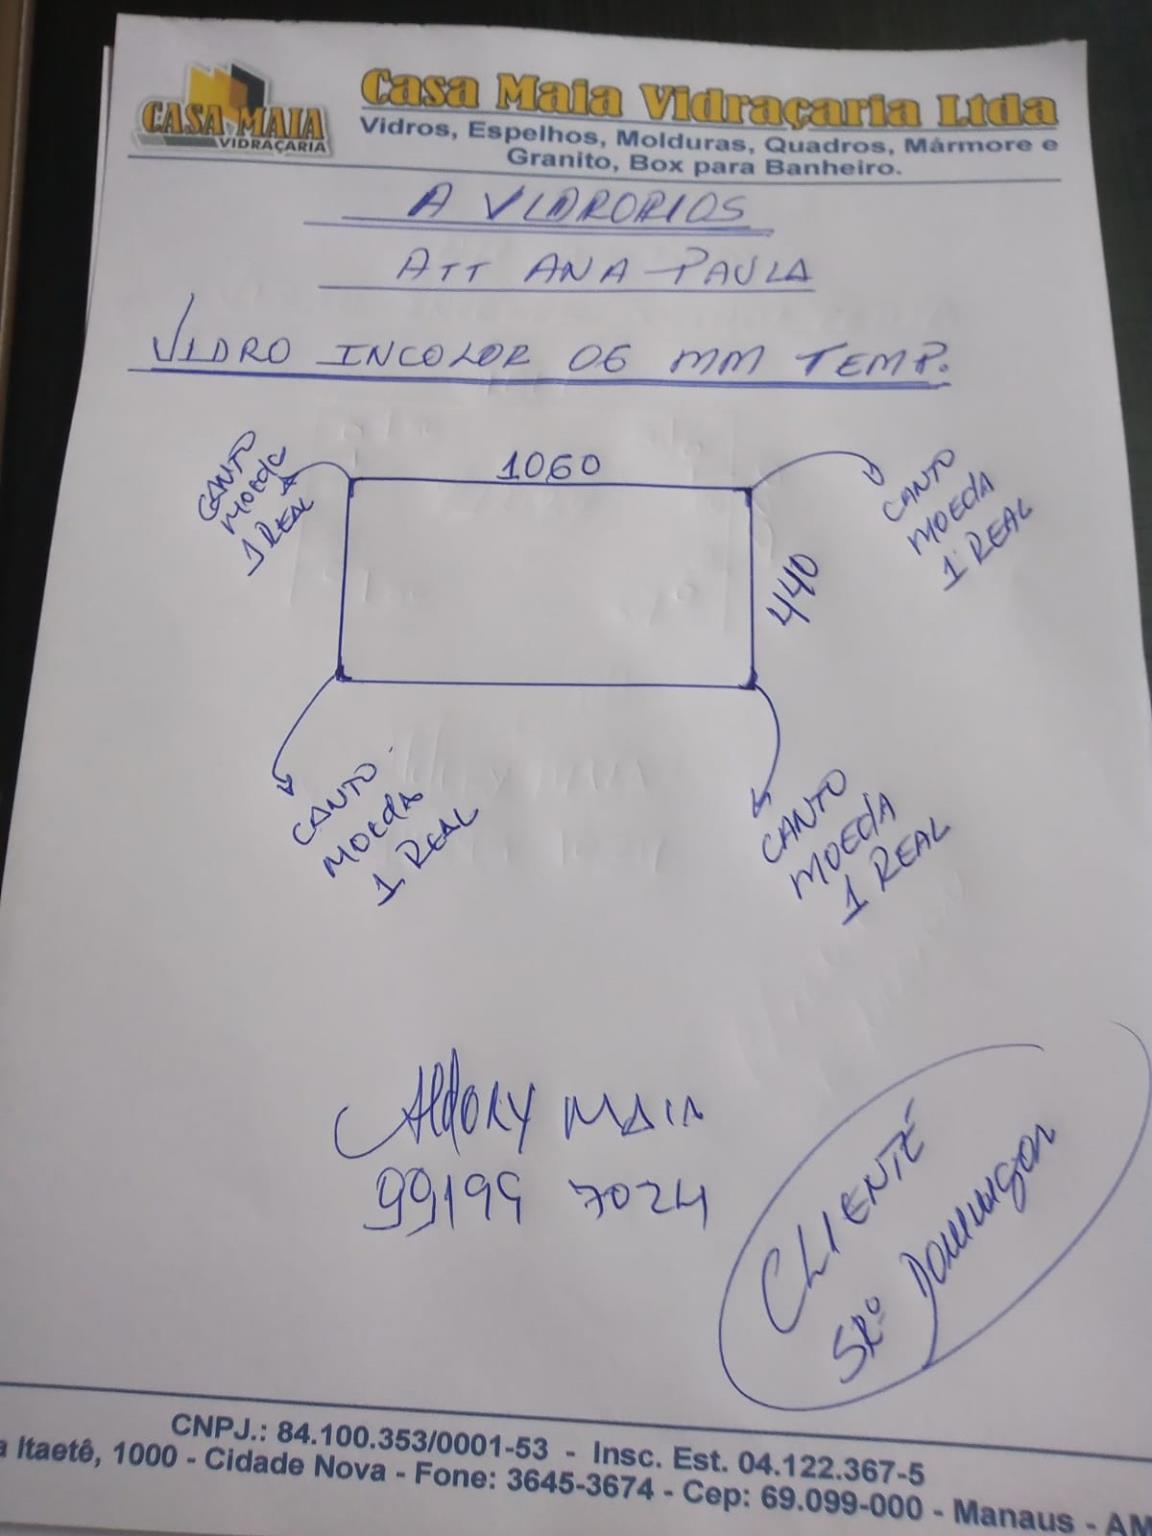 CASA MAIA
VIDRAÇARIA
Casa Maia Vidraçaria Ltda
Vidros, Espelhos, Molduras, Quadros, Mármore e
Granito, Box para Banheiro.
A VIDRORIOS
ATT ANA PAULA
VIDRO INCOLOR 06 MM TEMP.
CANTO
MOEDA
1 REAL
1060
CANTO
MOEDA
1 REAL
440
CANTO
MOEDA
1 REAL
CANTO
MOEDA
1 REAL
Aldory MAIA
99199 7024
CLIENTE
SRº
CNPJ.: 84.100.353/0001-53 - Insc. Est. 04.122.367-5
a Itaetê, 1000 - Cidade Nova - Fone: 3645-3674 - Cep: 69.099-000 - Manaus - AM